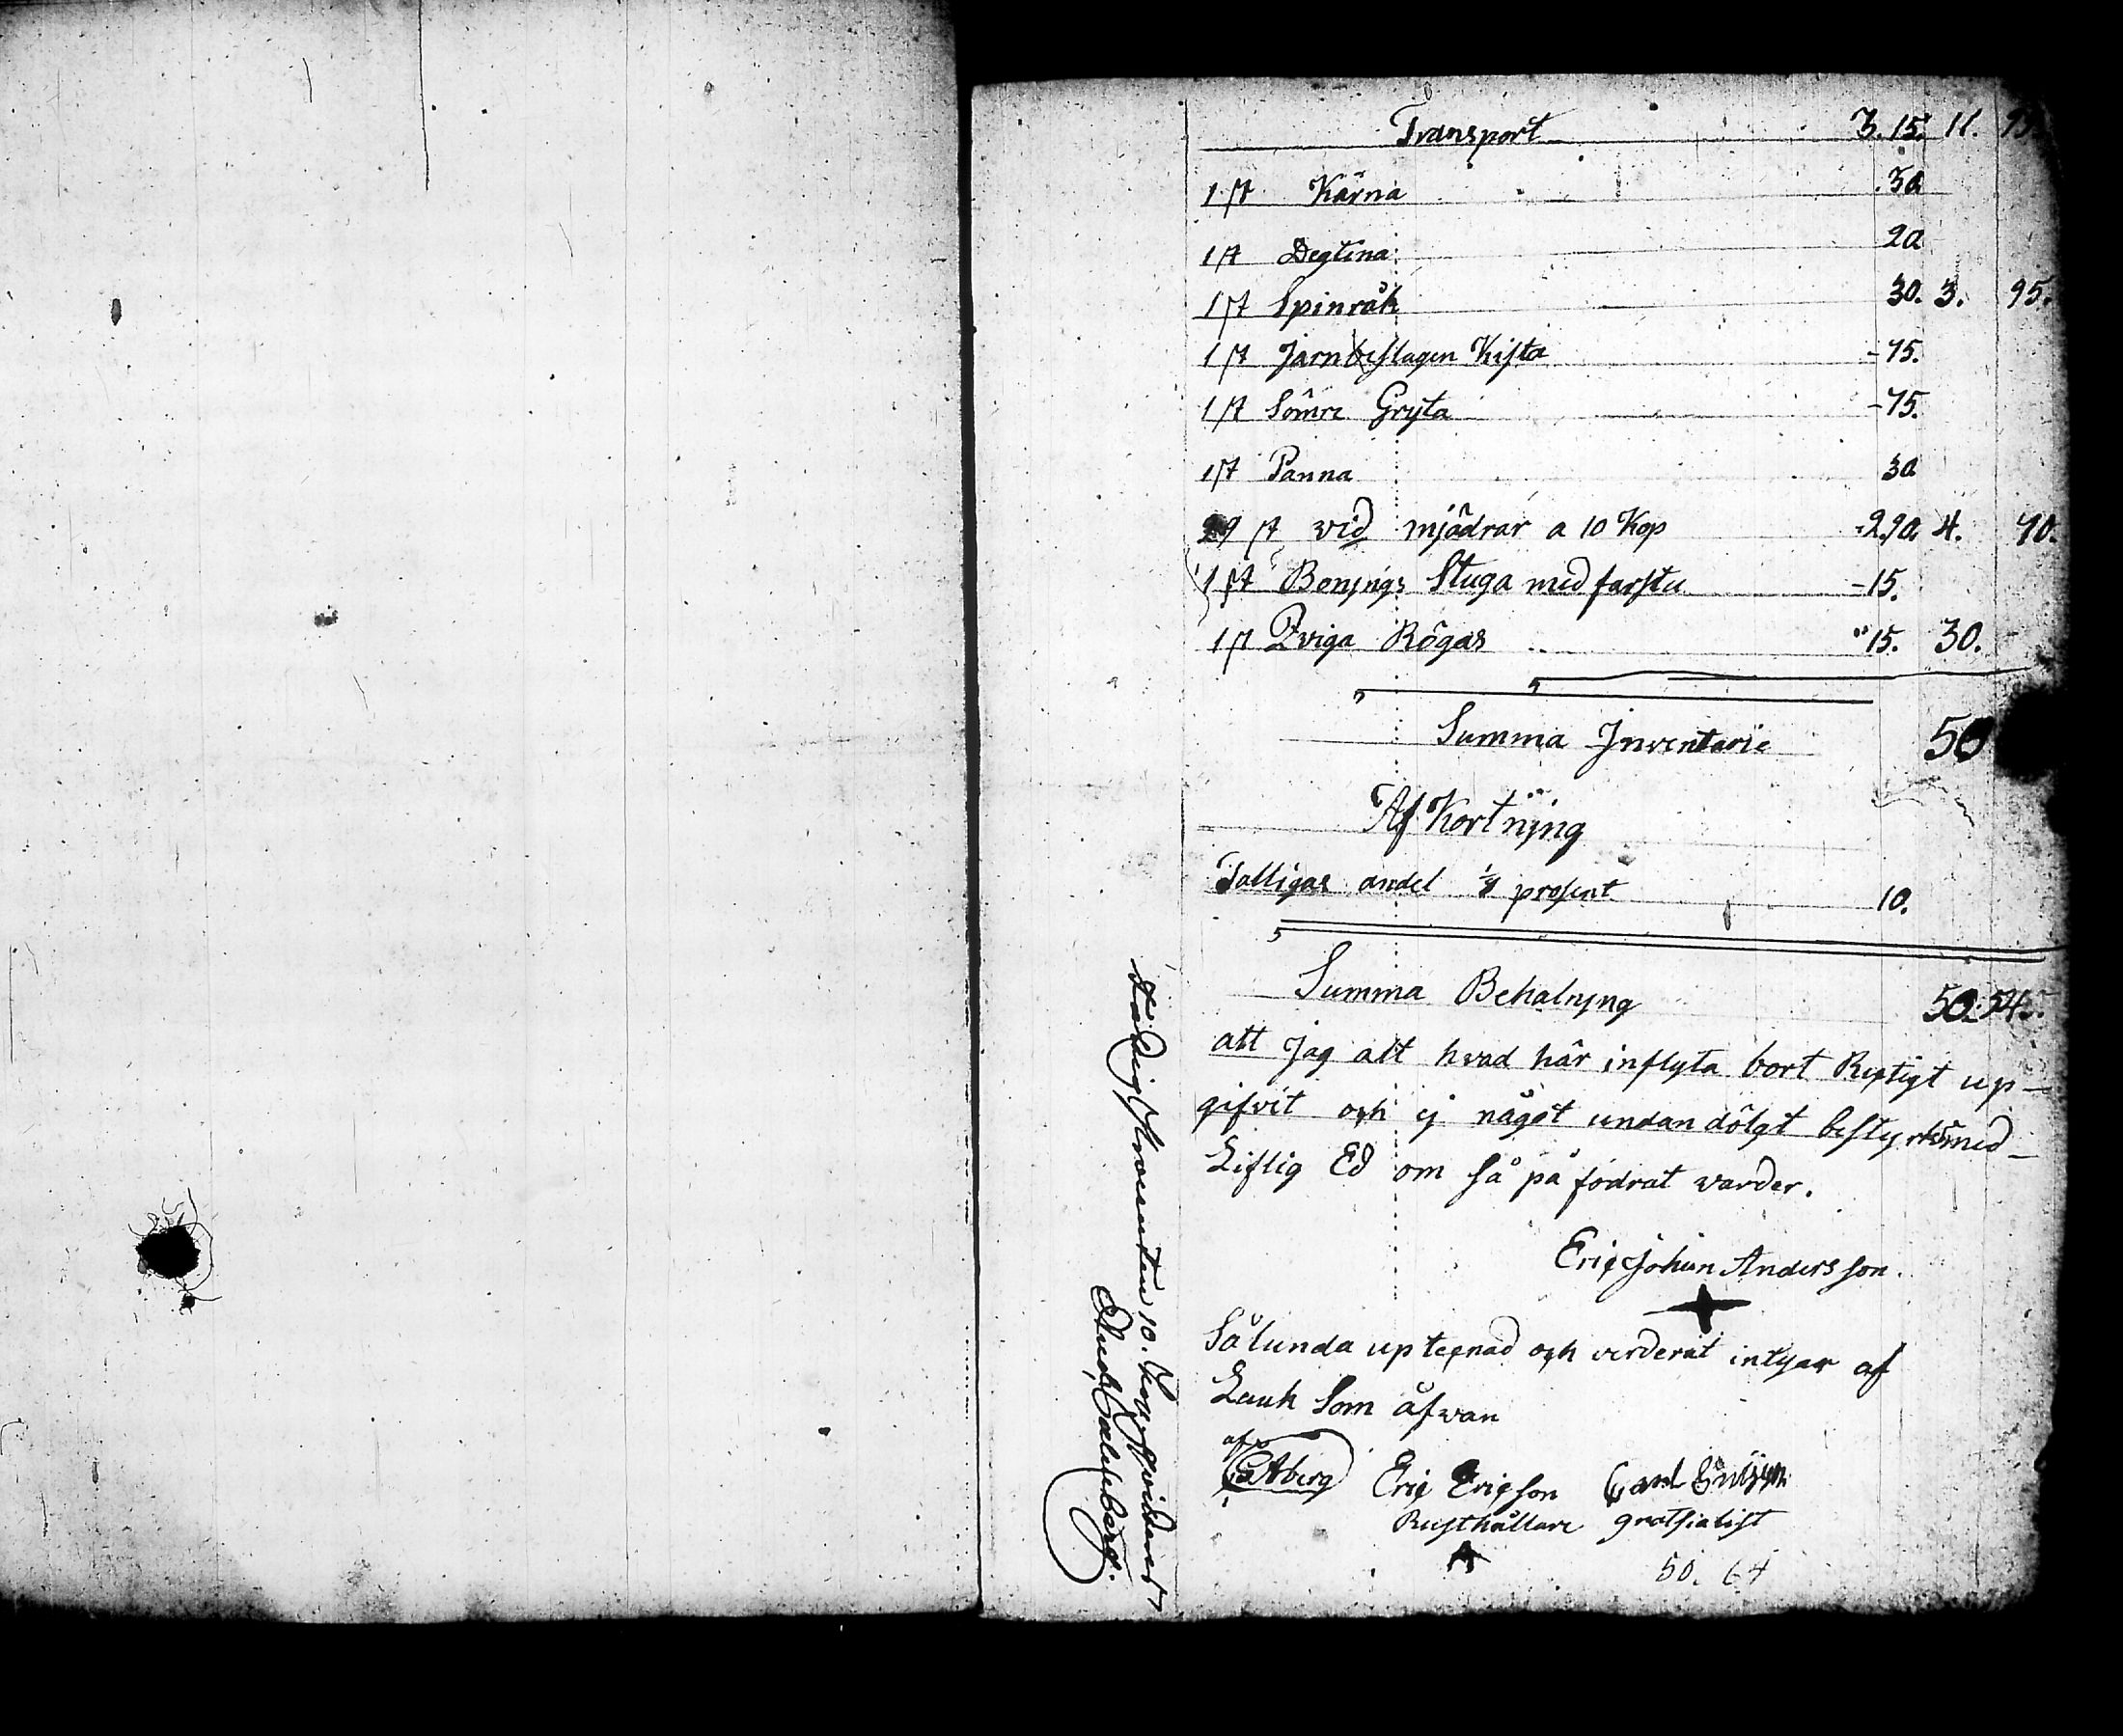 Transport 3. 15. 11.
1 st Kärna .30
1 st Degtina 20
1 st Spinråk 30. 3. 95.
1 st Järnbeslagen Kista -75.
1 st Sömre Gryta -75.
1 st Panna 30
29 st vid mjödrar a 10 Kop 2.90 4. 70.
1 st Bonings Stuga med farstu -15.
1 st Qviga Rögas 15. 30.
Summa Inventarie 50
Af Kortning
Fattigas andel 1/8 prosent 10.
Summa Behalning 50.54
att Jag alt hvad här inflyta bort Rigtigt up-
gifvit och ej något undan dölgt bestyrkes med
Liflig Ed om så på fodrat warder.
Eric Johan Andersson.
Sålunda uptegnad och verderat intygar af
Lauk Som åfwan
af
Åberg Eric Ericson Carl
Rusthållare gratsialist
50. 64
Fattig Procenten 10. Kop
Calleberg.